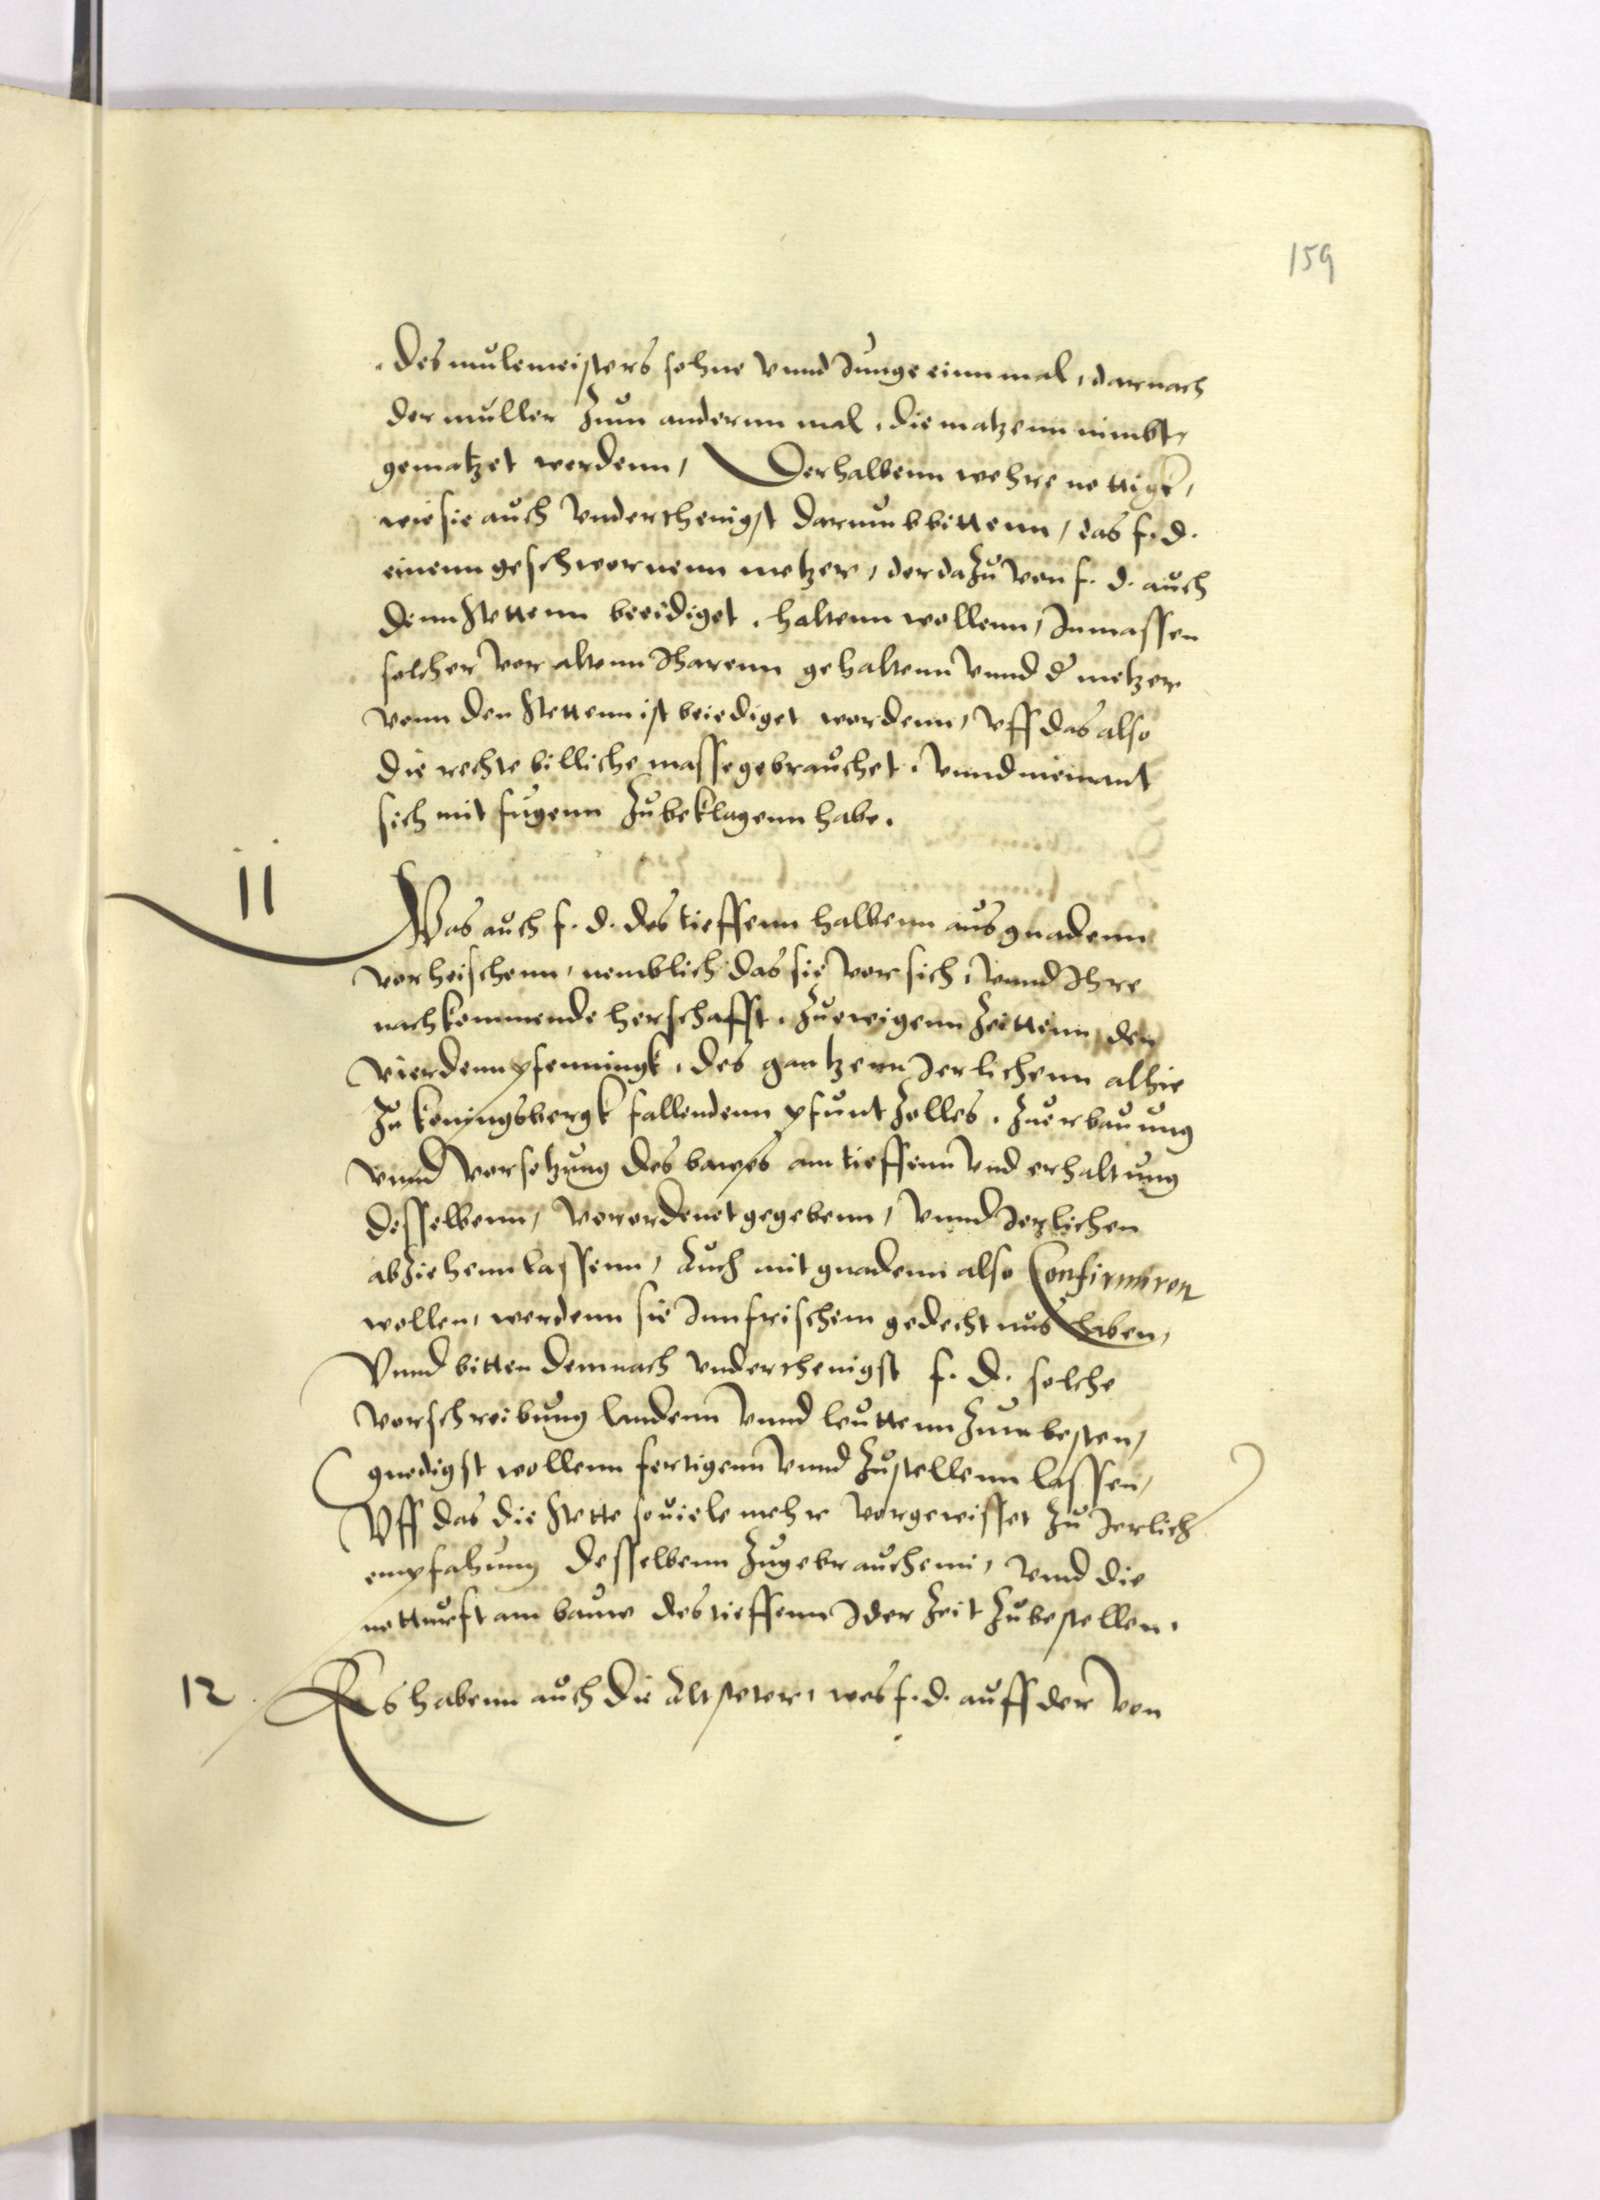 159
des mulemeisters sohne vnnd Junge ein mal, darnach
der muller zum andernn mal, die matzenn nimbt,
gematzet werdenn, Derhalbenn wehre nottigk,
wie sie auch vnderthenigst darumb bittenn, das f. d.
einenn geschwornenn metzer, der dazu von f. d. auch
denn Stettenn beeidiget, haltenn wollenn, Inmassen
solcher vor altenn Jharenn gehaltenn vnnd d metzer
vonn den Stettenn ist beiediget wordenn, vff das also
die rechte billiche masse gebrauchet, vnnd niemant
sich mit fugenn zubeklagenn habe.
11
Was auch f. d. des tieffenn halbenn aus gnadenn
vorheischenn, nemblich das sie vor sich, vnnd Ihre
nachkommende herschafft, zu ewigenn Zeittenn, den
vierdenn pfenningk, des gantzenn Jerlichenn alhie
zu konigsbergk fallendenn pfunt Zolles, zu erbauung
vnnd vorsetzung des bawes am tieffenn vnd erhaltung
desselbenn, verordenet gegebenn, vnnd Jerlichen
abziehenn lassenn, Auch mit gnadenn also Confirmiren
wollen, werdenn sie Inn frischem gedechtnus haben,
Vnnd bitten demnach vnderthenigst f. d. solche
vorschreibung landenn vnnd leuttenn zum besten,
gnedigst wollenn fertigenn vnnd zustellenn lassen,
Vff das die Stette souiele mehr vorgewisset zu Jerlich
empfahung desselbenn zugebrauchenn, vnnd die
notturft am bauwe des tieffenn Jder Zeit zubestellen.
12
Es habenn auch die Altsteter, wes f. d. auff der von